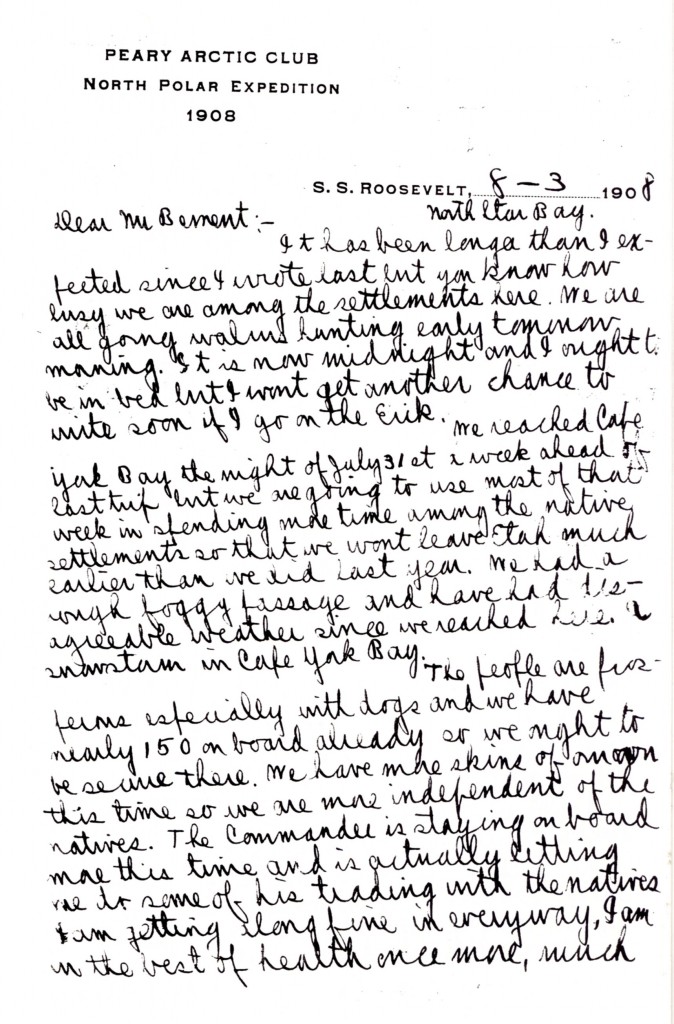 PEARY ARCTIC CLUB
NORTH POLAR EXPEDITION
1908
S. S. ROOSEVELT, 8-3 1908
North Star Bay.
Dear Mr Bement:-
It has been longer than I ex-
pected since I wrote last but you know how
busy we are among the settlements here. We are
all going walrus hunting early tomorrow
morning. It is now midnight and I ought to
be in bed but I wont get another chance to
write soon if I go on the Erik.
We reached Cape
York Bay the night of July 31st a week ahead of
last trip but we are going to use most of that
week in spending more time among the native
settlements so that we wont leave Etah much
earlier than we did last year. We had a
rough foggy passage and have had dis-
agreeable weather since we reached here. a
snowstorm in Cape York Bay.
The people are pros-
perous especially with dogs and we have
nearly 150 on board already so we ought to
be secure there. We have more skins of our own
this time so we are more independent of the
natives. The Commander is staying on board
more this time and is actually letting
me do some of his trading with the natives
I am getting along fine in everyway, I am
in the best of health once more, much